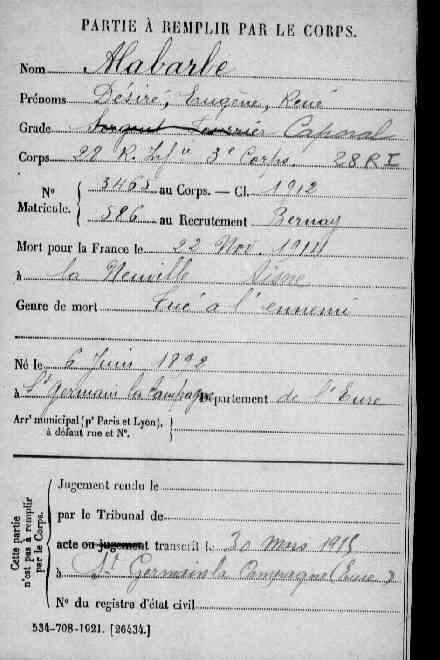 PARTIE À REMPLIR PAR LE CORPS.
Nom Alabarbe
Prénoms Désiré, Eugène, René
Grade Sergent Fourrier Caporal
Corps 22 R. Infie 3e Corps. 28 RI
N° Matricule. { 3463 au Corps. — Cl. 1912
586 au Recrutement Bernay
Mort pour la France le 22 Nov. 1914
à la Neuville Aisne
Genre de mort Tué à l'ennemi
Né le 6 Juin 1892
à St Germain la Campagne Département de l'Eure
Arrt municipal (pr Paris et Lyon), à défaut rue et N°. }
Cette partie n'est pas à remplir par le Corps.
Jugement rendu le
par le Tribunal de
acte ou jugement transcrit le 30 mars 1915
à St Germain la Campagne (Eure)
N° du registre d'état civil
534-708-1921. [26434.]